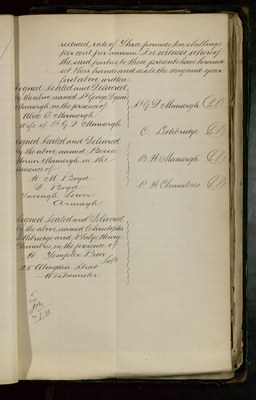 reduced rate of Three pounds ten shillings
per cent per annum In witness whereof
the said parties to these presents have hereunto
set their hands and seals the day and year
first above written
Signed Sealed and Delivered
by the above named St George Dyson
Mansergh in the presence of
Alice C Mansergh
Wife of St G D Mansergh
St G D Mansergh
C Bethbridge
Signed Sealed and Delivered
by the above named
Mansergh in the
presence of
H M Boyd
J Boyd
Lower
Armagh
B H Mansergh
P H Chambres
Signed Sealed and Delivered
by the above named Christopher
Bethbridge and Philip Henry
Chambres in the presence of
H Templer Prior
28 Abingdon Street
Westminster